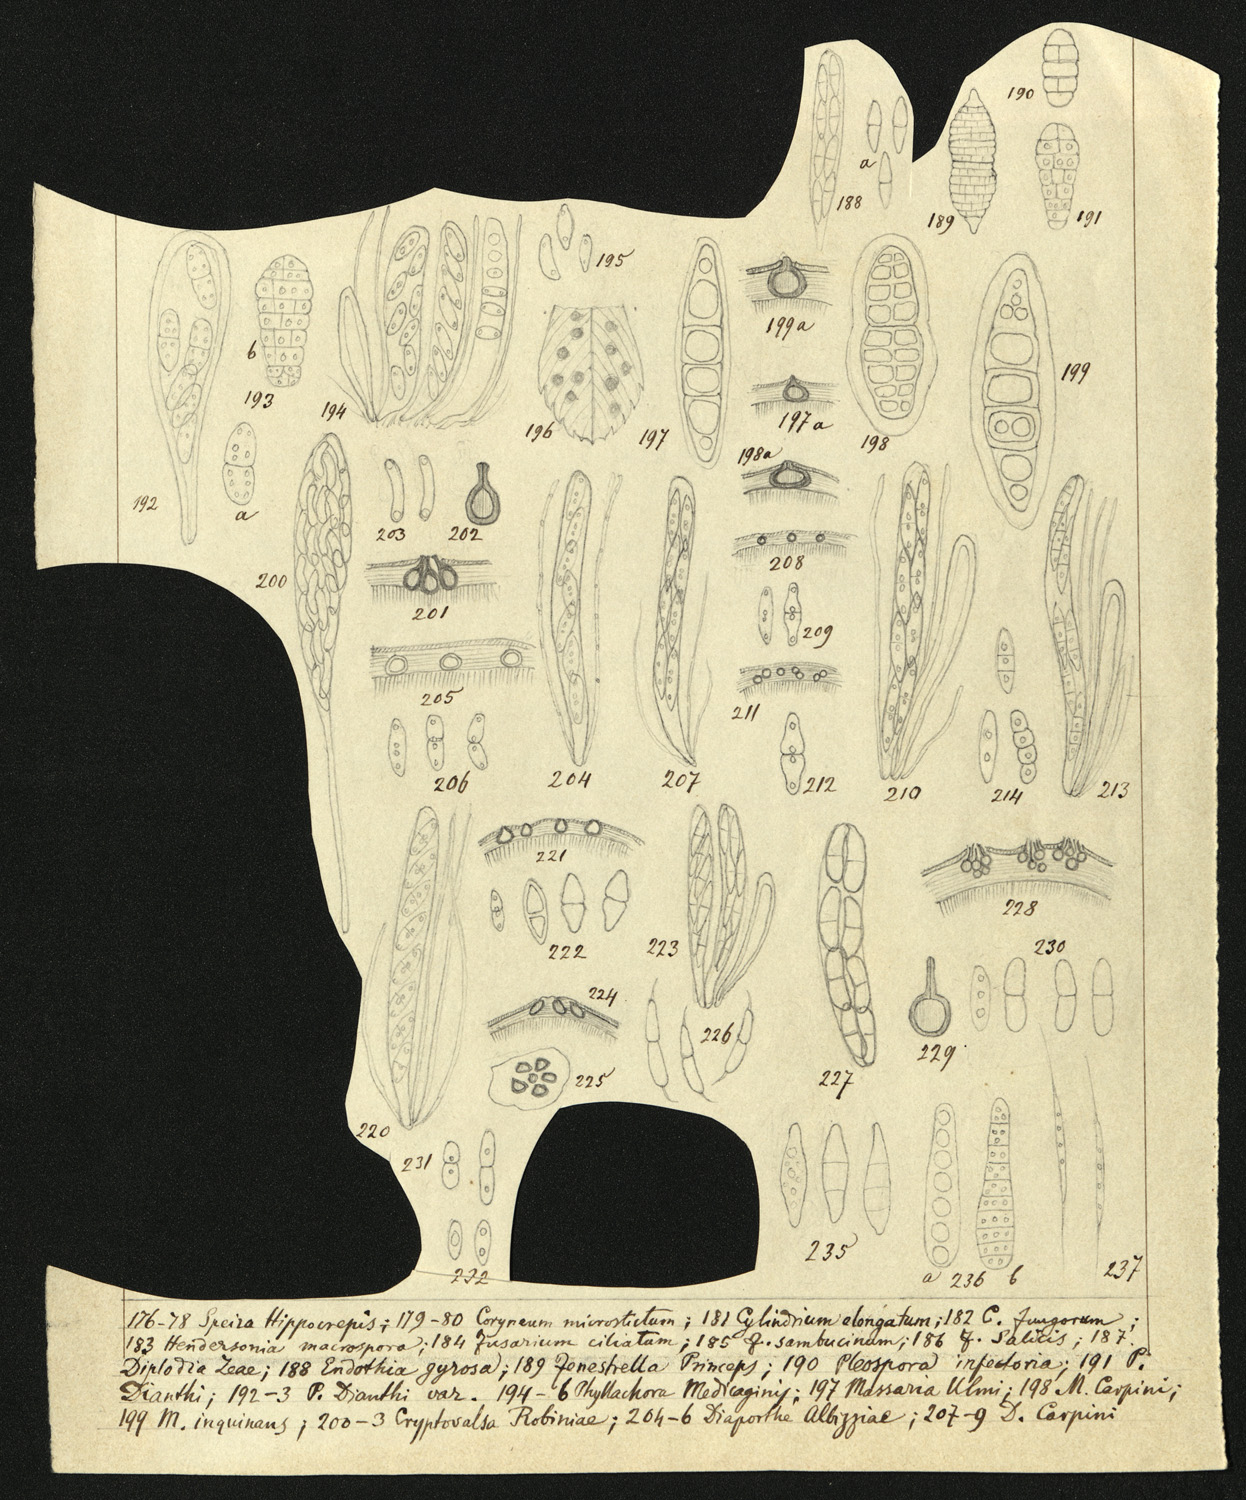 190
a
188
189
191
195
199a
6
193
194
199
196
197
197a
198
198a
192
a
203
202
200
208
201
209
205
211
206
204
207
212
210
214
213
221
222
223
228
230
224
226
229
225
227
220
231
235
232
a 236 b
237
176-78 Speira Hippocrepis; 179-80 Coryneum microstictum; 181 Cylindrium elongatum; 182 C. fungorum;
183 Hendersonia macrospora; 184 Fusarium ciliatum; 185 F. sambucinum; 186 F. Salicis; 187
Diplodia Zeae; 188 Endothia gyrosa; 189 Fenestrella Princeps; 190 Pleospora infectoria; 191 P.
Dianthi; 192-3 P. Dianthi var. 194-6 Phyllachora Medicaginis; 197 Massaria Ulmi; 198 M. Carpini;
199 M. inquinans; 200-3 Cryptovalsa Robiniae; 204-6 Diaporthe Albizziae; 207-9 D. Carpini